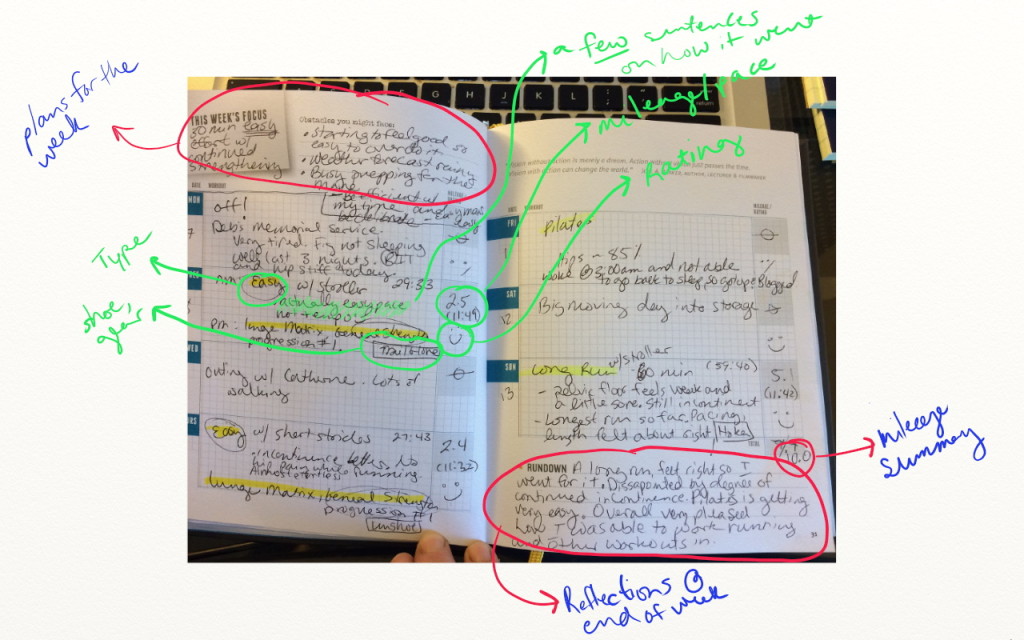 a few sentences
on how it went
mileage/pace
Rating
plans for the
week
Type
shoe,
gear
mileage
summary
Reflections @
end of week
THIS WEEK'S FOCUS
30 min easy
effort w/
continued
strengthening
Obstacles you might face:
• Starting to feel good so
easy to overdo it
• Weather forecast rainy
• Busy prepping for the
move
- be efficient w/
my time and
MON
off!
Deb's memorial service.
Very tired. Fig not sleeping
well last 3 nights. 
and hip stiff today
Easy w/ stroller 29:33
actually easy pace
2.5
(11:49)
PM: lunge Matrix, general strength
progression #1.
WED
Outing w/ Catherine. Lots of
walking
Easy w/ short strides 27:43
• incontinence better. No
2.4
lunge Matrix, general Strength
progression #1
return
FRI
Pilates
hips ~ 85%
woke @ 3:00am and not able
to go back to sleep so got up & blogged
SAT
12
Big moving day into storage
SUN
13
Long Run w/stroller 60 min (59:40)
- pelvic floor feels weak and
a little sore. Still incontinent
- Longest run so far. Pacing,
length felt about right Hoka
5.1
(11:42)
TOTAL
10.0
RUNDOWN A long run, felt right so I
went for it. Dissapointed by degree of
continued incontinence. Pilates is getting
very easy. Overall very pleased
how I was able to work running
and other workouts in.